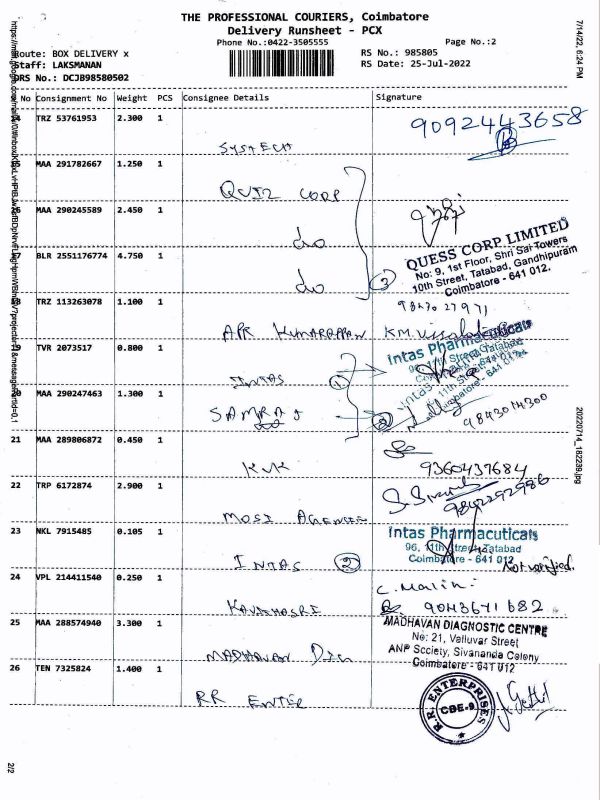 THE PROFESSIONAL COURIERS, Coimbatore
Delivery Runsheet - PCX
Phone No.:0422-3505555
Page No.:2
Route: BOX DELIVERY x
RS No.: 985805
Staff: LAKSMANAN
RS Date: 25-Jul-2022
DRS No.: DCJB98580502
7/14/22, 6:24 PM
No Consignment No Weight PCS Consignee Details Signature
TRZ 53761953 2.300 1
SYSTECH
9092443658
MAA 291782667 1.250 1
QUIZ CORP
MAA 290245589 2.450 1
do
BLR 2551176774 4.750 1
do
3
QUESS CORP LIMITED
No: 9, 1st Floor, Shri Sai Towers
10th Street, Tatabad, Gandhipuram
Coimbatore - 641 012.
TRZ 113263078 1.100 1
APR KUMARAPPAN
TVR 2073517 0.800 1
INTAS
1
Intas Pharmaceuticals
MAA 290247463 1.300 1
SAMRAJ
9843014300
21 MAA 289806872 0.450 1
KVK
9360437684
22 TRP 6172874 2.900 1
MOSI AGENCIE
9842292986
23 NKL 7915485 0.105 1
INTAS 2
Intas Pharmacuticals
96, 11th Street, Tatabad
Coimbatore - 641 012
Not verified.
24 VPL 214411540 0.250 1
C. Malini
9043671682
25 MAA 288574940 3.300 1
MADHAVAN DIG
MADHAVAN DIAGNOSTIC CENTRE
No: 21, Valluvar Street
ANP Society, Sivananda Colony
Coimbatore - 641 012
26 TEN 7325824 1.400 1
RR ENTER
R.R. ENTERPRISES
CBE-9
20220714_182239.jpg
2/2